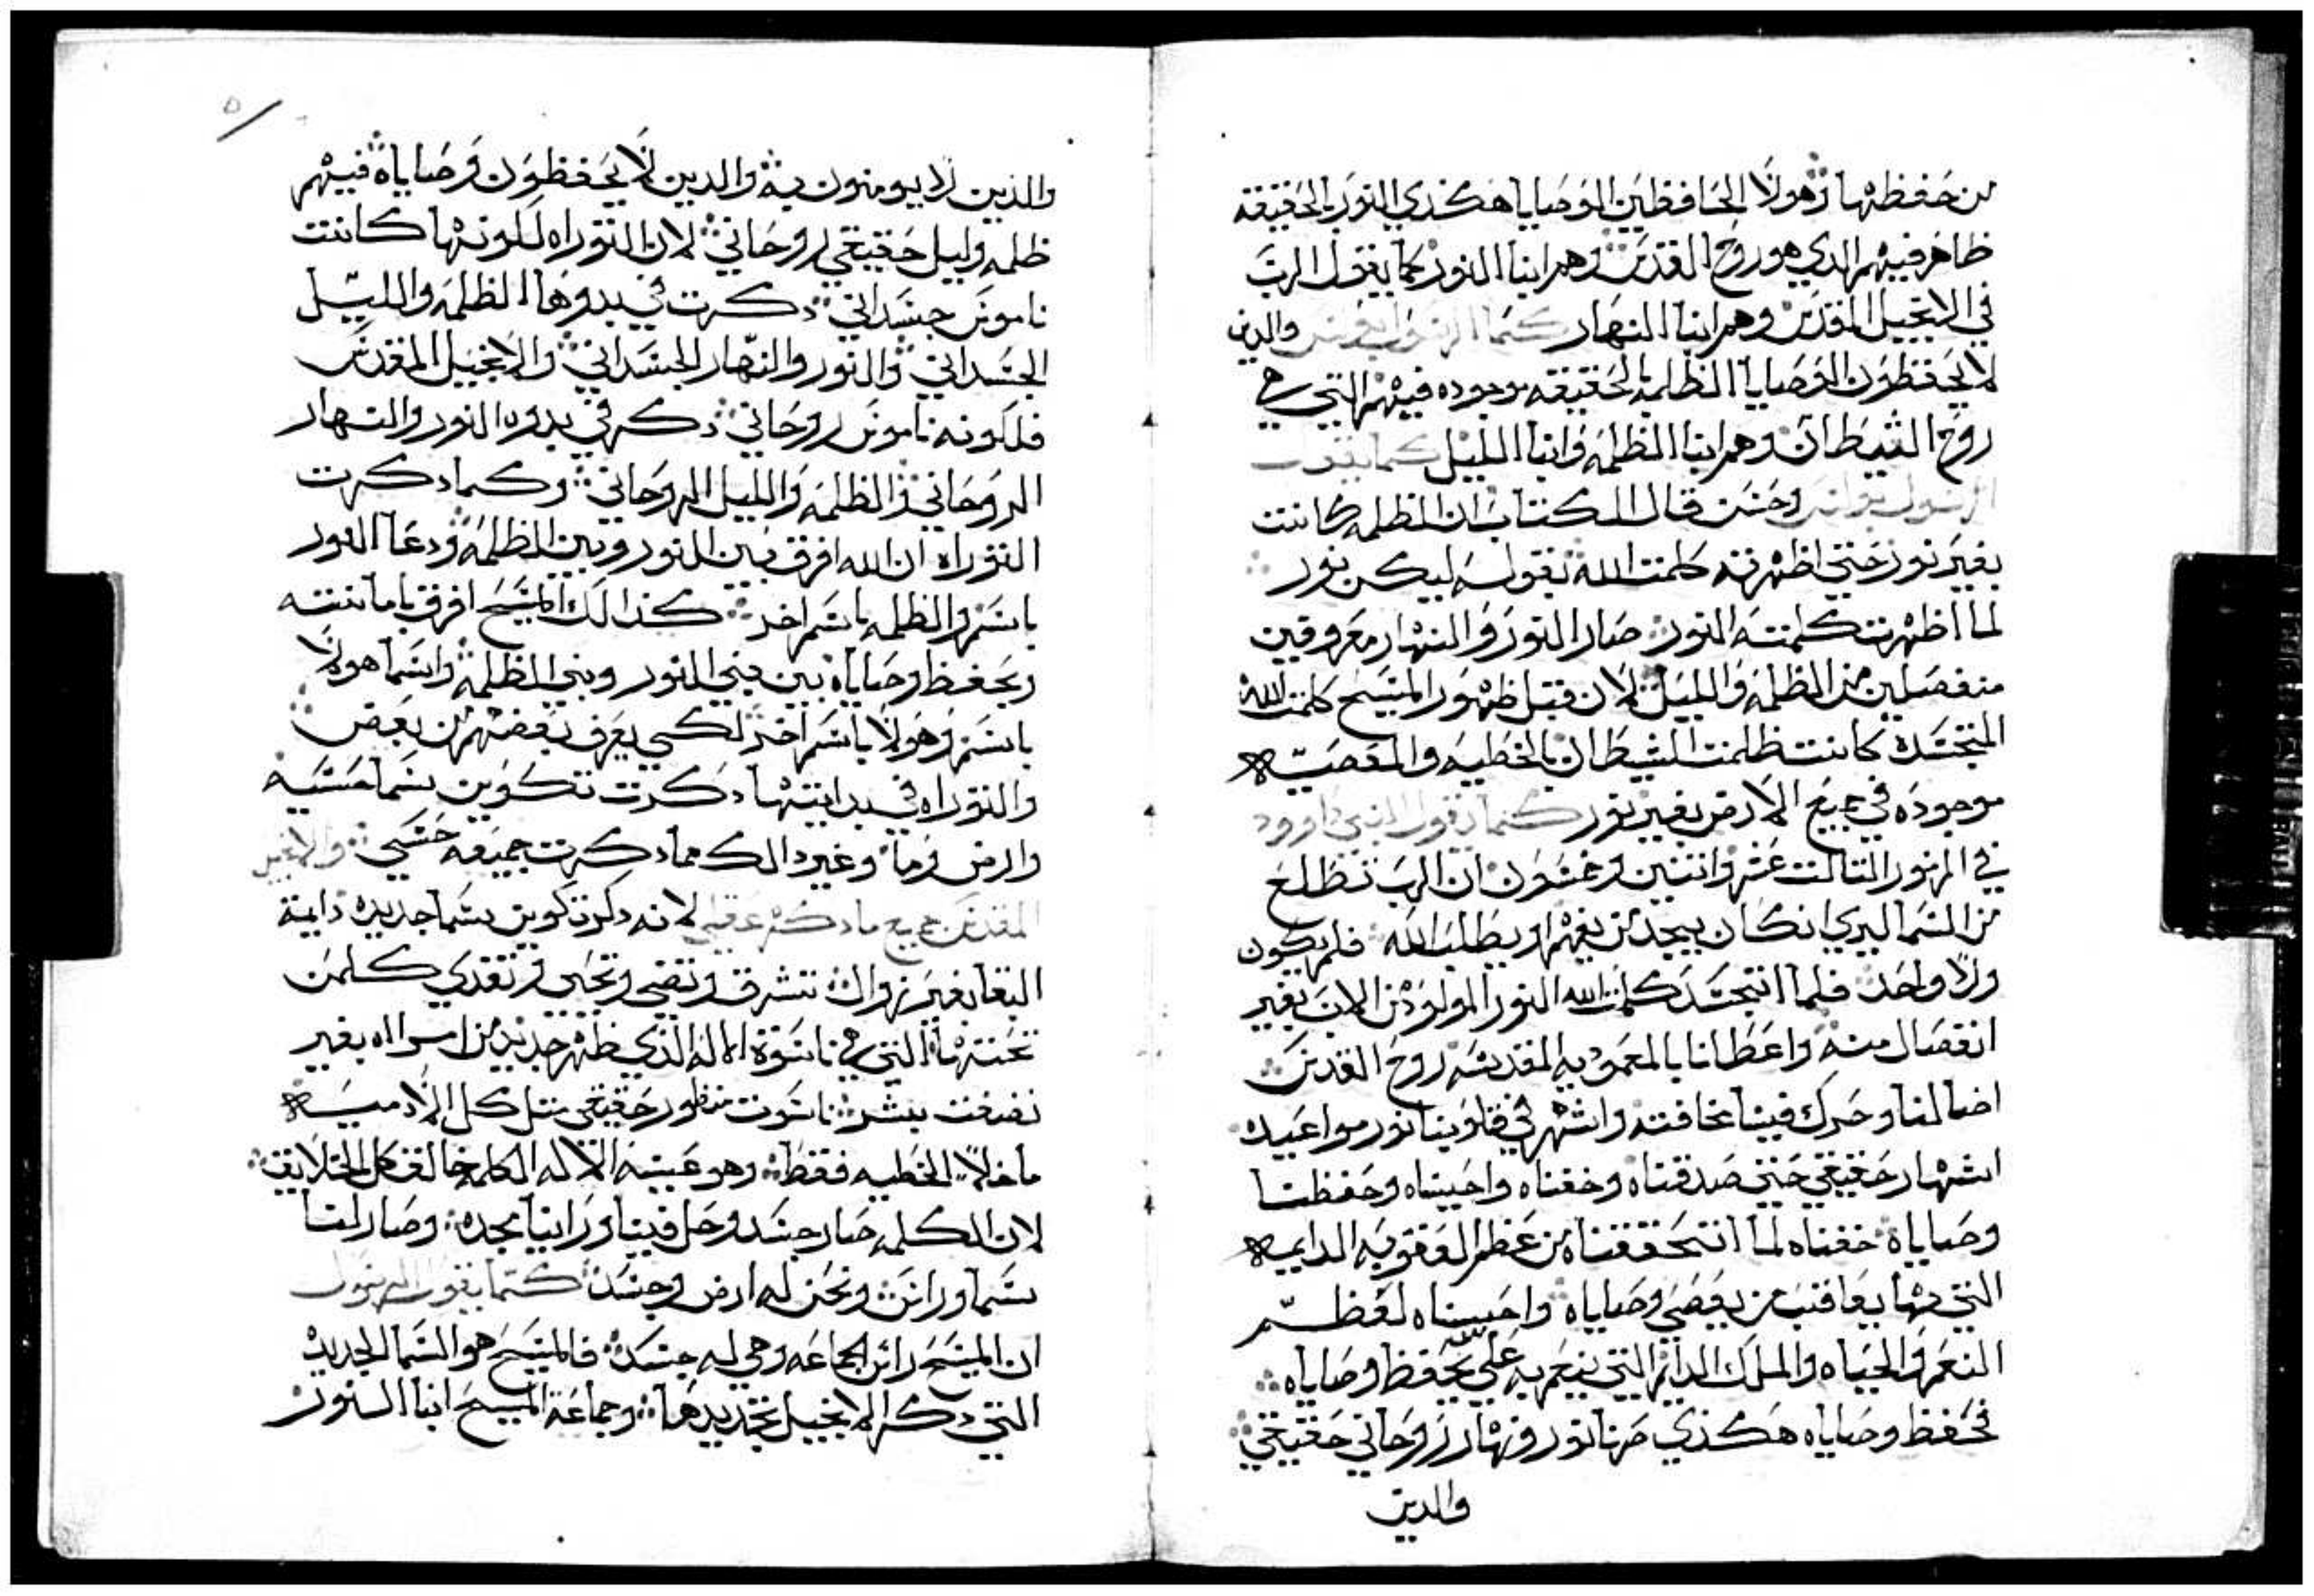 من حفظها وهولا الحافظين الوصايا هكذي النور بالحقيقه
ظاهر فيهم الدي هو روح القدس وهم ابنا النور كما يقول الرب
في الانجيل المقدس وهم ابنا النهار كما الرسول بولس والدين
لا يحفظون الوصايا الظلمه بالحقيقه موجوده فيهم التي هي
روح الشيطان وهم ابنا الظلمه وابنا الليل كما يقول
الرسول بولس وحسن قال الكتاب ان الظلمه كانت
بغير نور حتى اظهرته كلمت الله بقوله ليكن نور
لما اظهرت كلمته النور صار النور والنهار معروفين
منفصلين من الظلمه والليل لان قبل ظهور المسيح كلمت الله
المتجسده كانت ظلمت الشيطان بالخطيه والمعصيه
موجوده في جميع الارض بغير نور كما يقول النبي داوود
في المزمور التالت عشر واتنين وخمسون ان الرب تطلع
من السما ليري ان كان يجد من يفهم او يطلب الله فلم يكون
ولا واحد فلما اتجسد كلمت الله النور المولود من الاب بغير
انفصال منه واعطانا بالمعموديه المقدسه روح القدس
اضا لنا وحرك فينا مخافته واشهر في قلوبنا نور مواعيده
اشهار حقيقي حتى صدقناه وخفناه واحبيناه وحفظنا
وصاياه خفناه لما اتحققناه من عظم العقوبه الدايمه
التي بها يعاقب من يعصي وصاياه واحبيناه لعظم
النعم والحياه والملك الدايم التي ينعم به على من يحفظ وصاياه
فحفظ وصاياه هكذي صرنا نور ونهار روحاني حقيقي
والدين
والدين لا يومنون به والدين لا يحفظون وصاياه فيهم
ظلمه وليل حقيقي روحاني لان التوراه لكونها كانت
ناموس جسداني دكرت في بدوها الظلمه والليل
الجسداني والنور والنهار الجسداني والانجيل المقدس
فلكونه ناموس روحاني دكر في بدوه النور والنهار
الروحاني والظلمه والليل الروحاني وكما دكرت
التوراه ان الله افرق بين النور وبين الظلمه ودعا النور
باسم والظلمه باسم اخر كذالك المسيح افرق بامانته
وبحفظ وصاياه بين بني النور وبني الظلمه واسما هولا
باسم وهولا باسم اخر لكي يعرف بعضهم من بعض
والتوراه في بدايتها دكرت تكوين سما حسيه
وارض وما وغير دالك مما دكرت جميعه حسي والانجيل
المقدس جميع ما دكره عقلي لانه دكر تكوين سما جديده دايمة
البقا بغير زوال تشرق وتضي وتحيي وتقدس كلمن
تحتها التي هي ناسوة الاله الذي ظهر جديد من امراه بغير
نصفت بشر ناسوت منظور حقيقي متل كل الادميه
ما خلا الخطيه فقط وهو عينه الاله الكلمه خالق كل الخلايق
لان الكلمه صار جسد وحل فينا وراينا مجده وصار لنا
سما وراس ونحن له ارض وجسد كما يقول الرسول
ان المسيح راس الجماعه وهي له جسد فالمسيح هو السما الجديد
التي دكر الانجيل تجديدها وجماعة المسيح ابنا النور